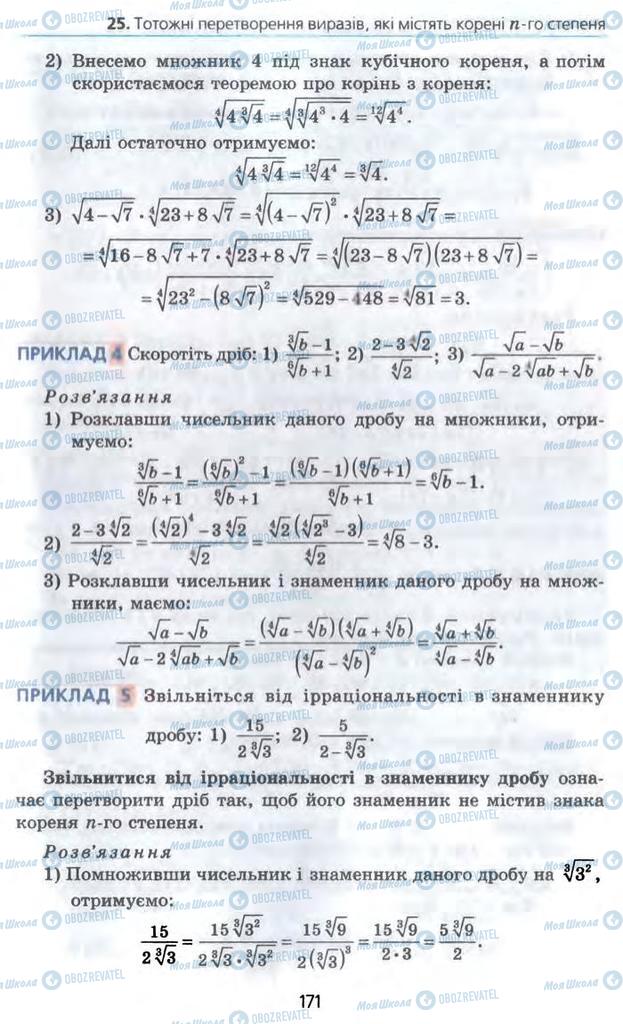 25. Тотожні перетворення виразів, які містять корені n-го степеня
2) Внесемо множник 4 під знак кубічного кореня, а потім
скористаємося теоремою про корінь з кореня:
∜(4∛4) = ∜(∛(4³ · 4)) = ¹²√(4⁴).
Далі остаточно отримуємо:
∜(4∛4) = ¹²√(4⁴) = ∛4.
3) √(4 − √7) · ∜(23 + 8√7) = ∜((4 − √7)²) · ∜(23 + 8√7) =
= ∜(16 − 8√7 + 7) · ∜(23 + 8√7) = ∜((23 − 8√7)(23 + 8√7)) =
= ∜(23² − (8√7)²) = ∜(529 − 448) = ∜81 = 3.
ПРИКЛАД 4 Скоротіть дріб: 1) (∛b − 1)/(⁶√b + 1); 2) (2 − 3∜2)/∜2; 3) (√a − √b)/(√a − 2∜(ab) + √b).
Розв'язання
1) Розклавши чисельник даного дробу на множники, отри-
муємо:
(∛b − 1)/(⁶√b + 1) = ((⁶√b)² − 1)/(⁶√b + 1) = ((⁶√b − 1)(⁶√b + 1))/(⁶√b + 1) = ⁶√b − 1.
2) (2 − 3∜2)/∜2 = ((∜2)⁴ − 3∜2)/∜2 = (∜2(∜(2³) − 3))/∜2 = ∜8 − 3.
3) Розклавши чисельник і знаменник даного дробу на множ-
ники, маємо:
(√a − √b)/(√a − 2∜(ab) + √b) = ((∜a − ∜b)(∜a + ∜b))/((∜a − ∜b)²) = (∜a + ∜b)/(∜a − ∜b).
ПРИКЛАД 5 Звільніться від ірраціональності в знаменнику
дробу: 1) 15/(2∛3); 2) 5/(2 − ∛3).
Звільнитися від ірраціональності в знаменнику дробу озна-
чає перетворити дріб так, щоб його знаменник не містив знака
кореня n-го степеня.
Розв'язання
1) Помноживши чисельник і знаменник даного дробу на ∛(3²),
отримуємо:
15/(2∛3) = (15∛(3²))/(2∛3 · ∛(3²)) = (15∛9)/(2(∛3)³) = (15∛9)/(2 · 3) = (5∛9)/2.
171